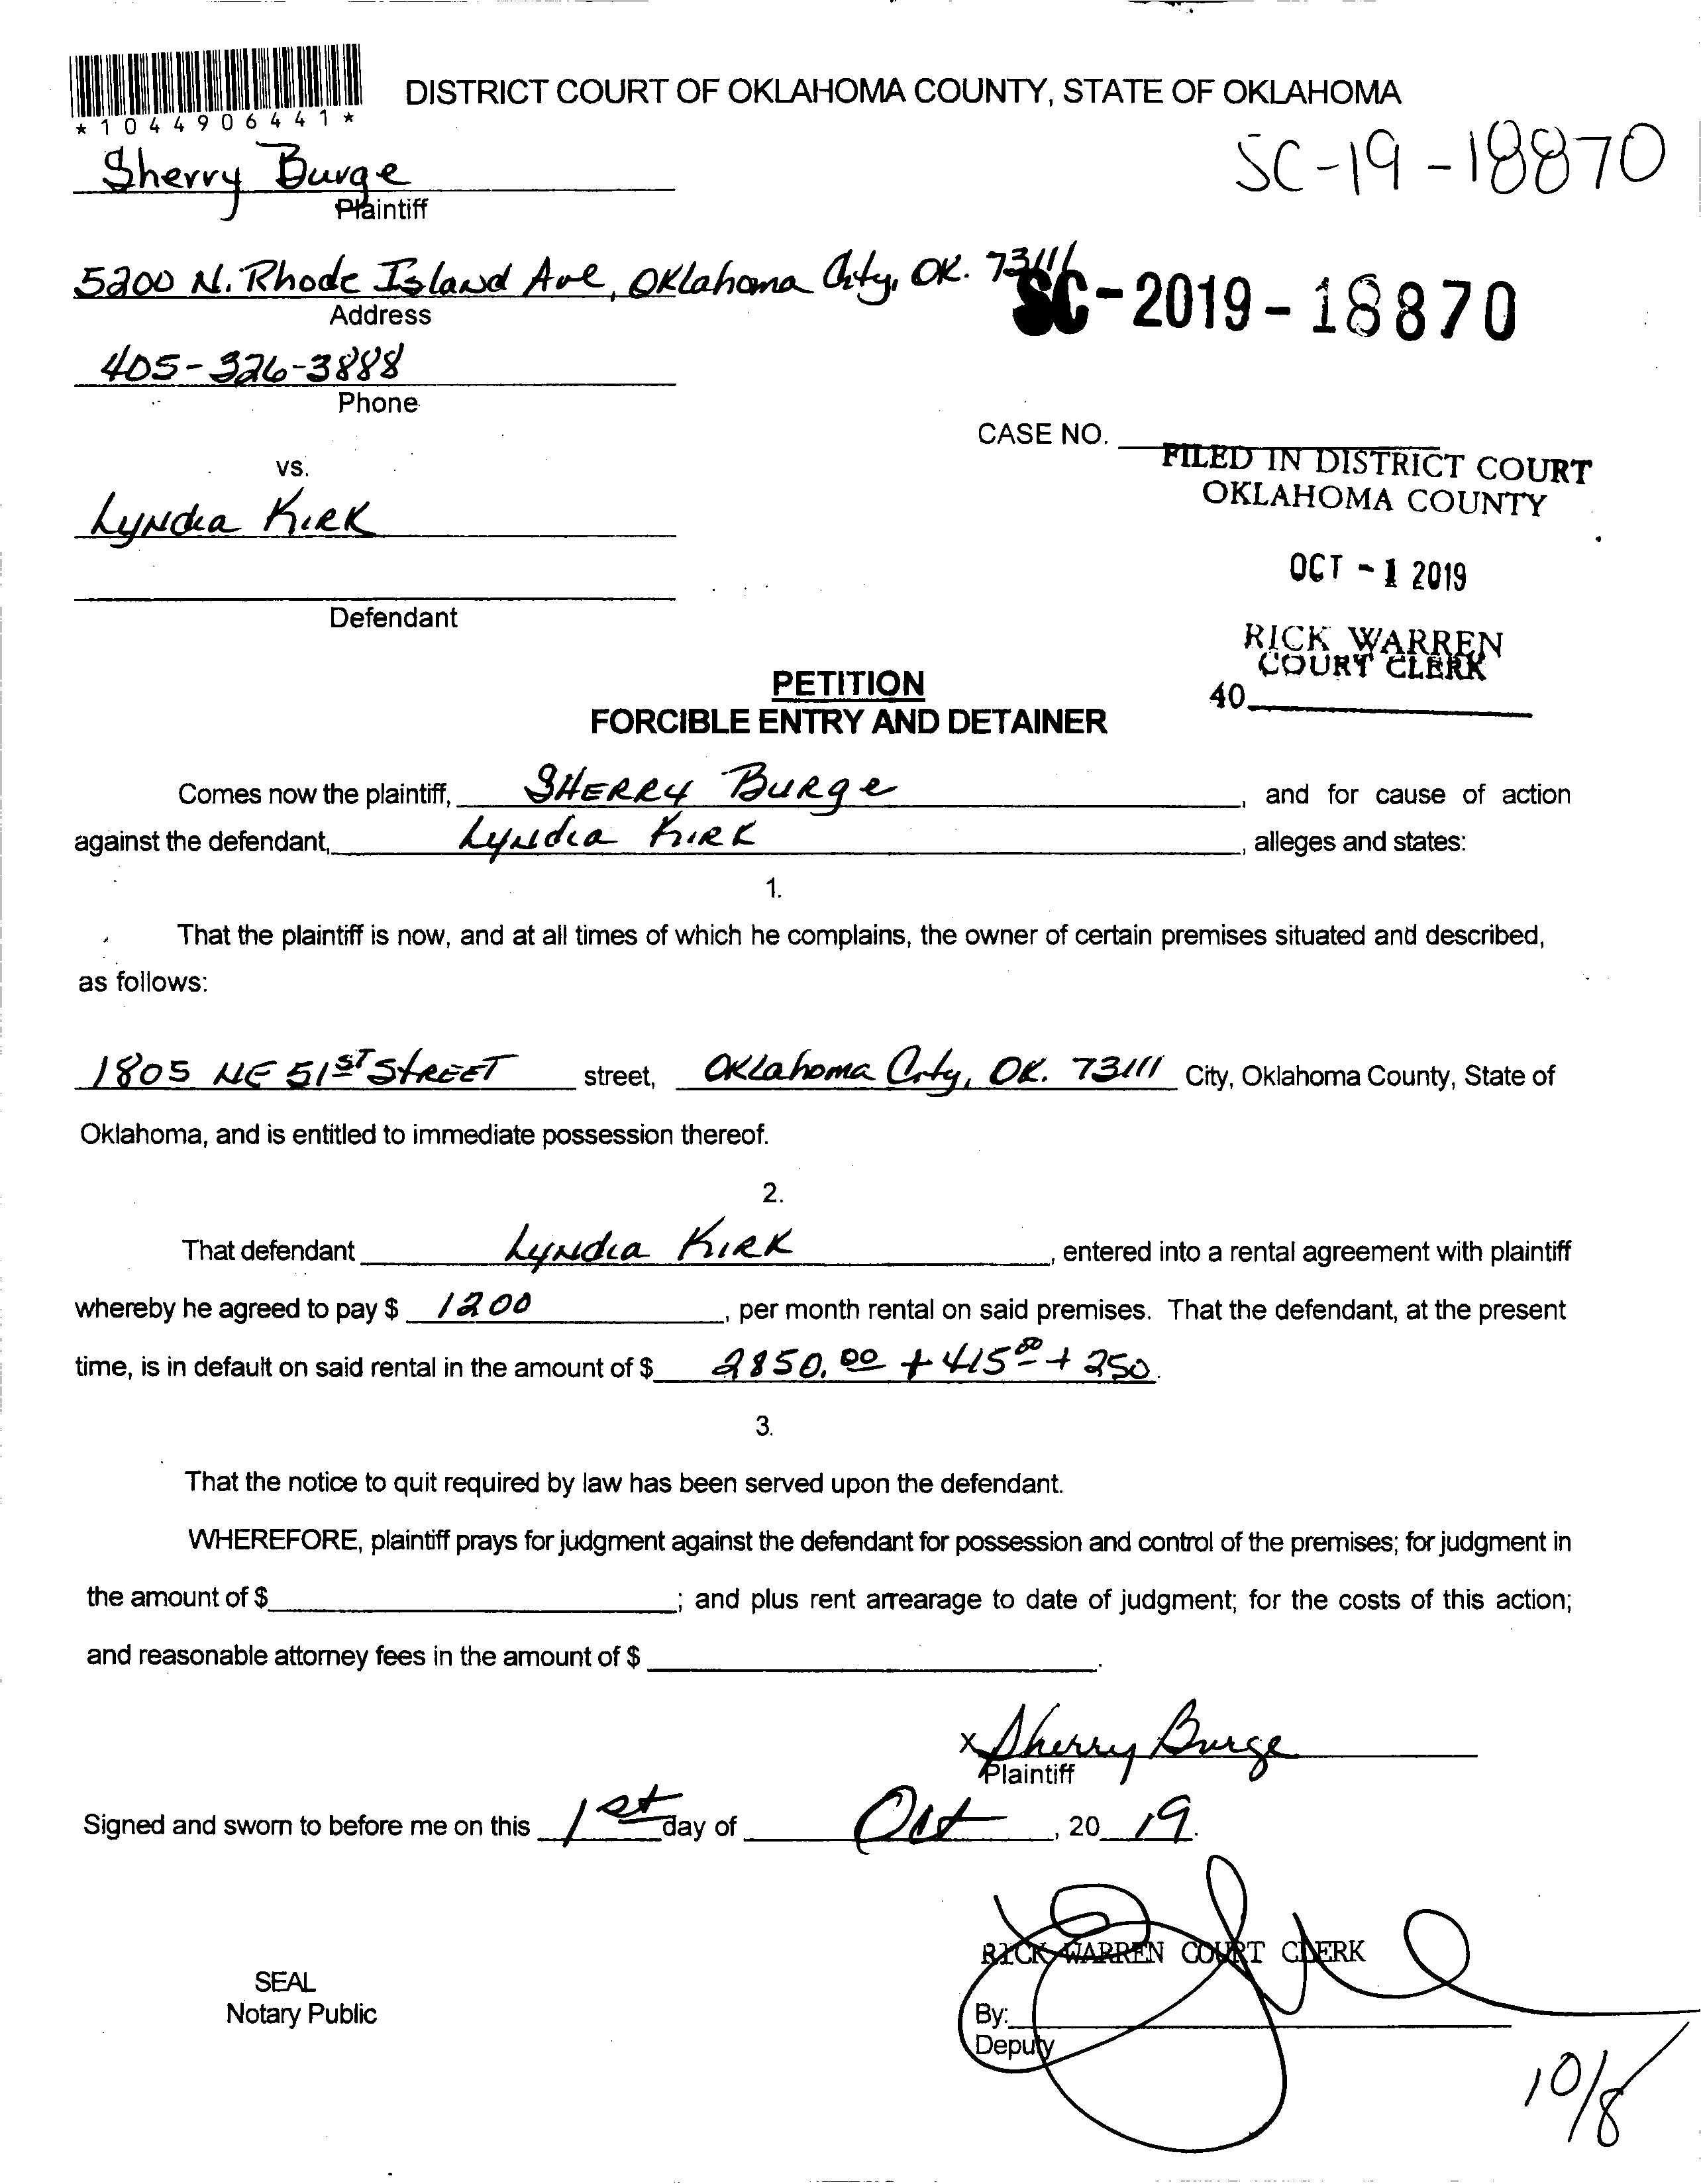 DISTRICT COURT OF OKLAHOMA COUNTY, STATE OF OKLAHOMA
*1044906441*
SC-19-18870
Sherry Burge
Plaintiff
5200 N. Rhode Island Ave, Oklahoma City, OK. 73111
Address
SC-2019-18870
405-326-3888
Phone
CASE NO.
vs.
FILED IN DISTRICT COURT
OKLAHOMA COUNTY
Lyndia Kirk
OCT - 1 2019
Defendant
RICK WARREN
COURT CLERK
40
PETITION
FORCIBLE ENTRY AND DETAINER
Comes now the plaintiff, SHERRY Burge, and for cause of action
against the defendant, Lyndia Kirk, alleges and states:
1.
That the plaintiff is now, and at all times of which he complains, the owner of certain premises situated and described,
as follows:
1805 NE 51ST STREET street, Oklahoma City, OK. 73111 City, Oklahoma County, State of
Oklahoma, and is entitled to immediate possession thereof.
2.
That defendant Lyndia Kirk, entered into a rental agreement with plaintiff
whereby he agreed to pay $ 1200, per month rental on said premises. That the defendant, at the present
time, is in default on said rental in the amount of $ 2850.00 + 415 00 + 250.
3.
That the notice to quit required by law has been served upon the defendant.
WHEREFORE, plaintiff prays for judgment against the defendant for possession and control of the premises; for judgment in
the amount of $ ; and plus rent arrearage to date of judgment; for the costs of this action;
and reasonable attorney fees in the amount of $ .
x Sherry Burge
Plaintiff
Signed and sworn to before me on this 1st day of Oct, 20 19.
RICK WARREN COURT CLERK
SEAL
Notary Public
By:
Deputy
10/8